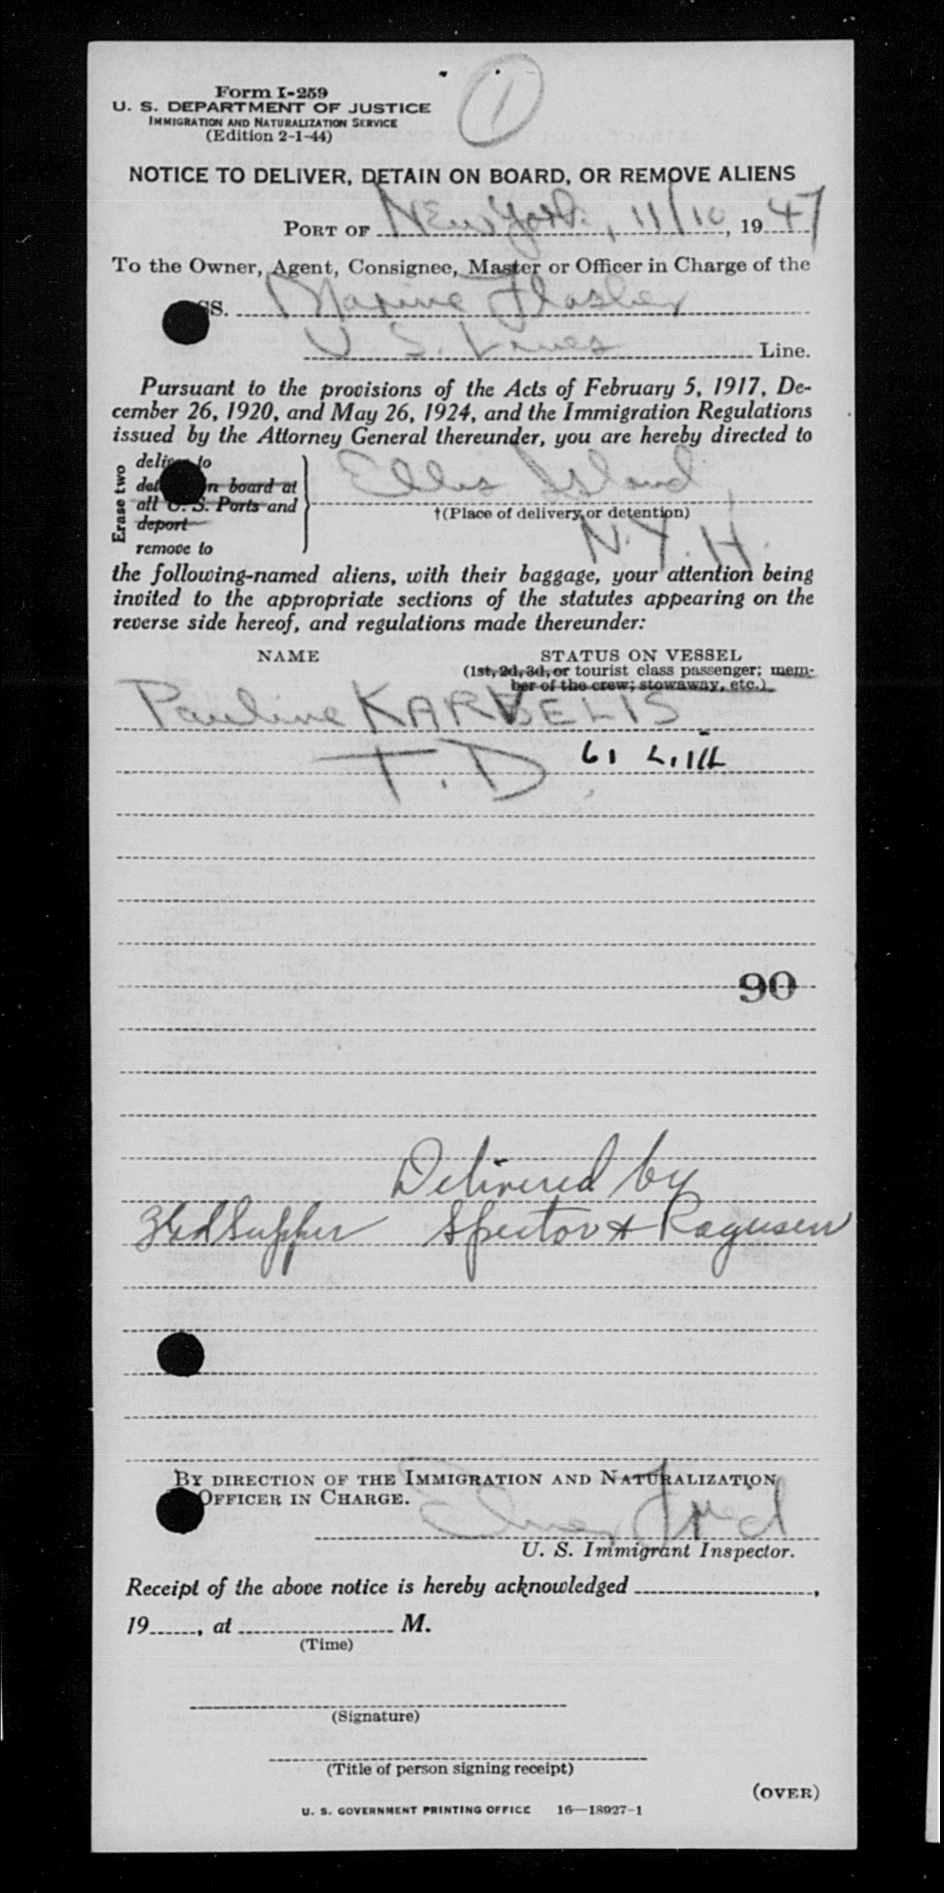 1
Form I-259
U. S. DEPARTMENT OF JUSTICE
IMMIGRATION AND NATURALIZATION SERVICE
(Edition 2-1-44)
NOTICE TO DELIVER, DETAIN ON BOARD, OR REMOVE ALIENS
PORT OF New York, 11/10, 1947
To the Owner, Agent, Consignee, Master or Officer in Charge of the
SS. Marine Flasher
U. S. Lines Line.
Pursuant to the provisions of the Acts of February 5, 1917, De-
cember 26, 1920, and May 26, 1924, and the Immigration Regulations
issued by the Attorney General thereunder, you are hereby directed to
Erase two
deliver to
on board at
all U. S. Ports and
deport
remove to
Ellis Island,
†(Place of delivery or detention)
N.Y.H.
the following-named aliens, with their baggage, your attention being
invited to the appropriate sections of the statutes appearing on the
reverse side hereof, and regulations made thereunder:
NAME STATUS ON VESSEL
(1st, 2d, 3d, or tourist class passenger; mem-
ber of the crew; stowaway, etc.)
Pauline KARVELIS
T.D 61
90
Delivered by
Supper Spector & Ragusen
BY DIRECTION OF THE IMMIGRATION AND NATURALIZATION
OFFICER IN CHARGE.
U. S. Immigrant Inspector.
Receipt of the above notice is hereby acknowledged ,
19 , at M.
(Time)
(Signature)
(Title of person signing receipt)
(OVER)
U. S. GOVERNMENT PRINTING OFFICE 16—18927-1